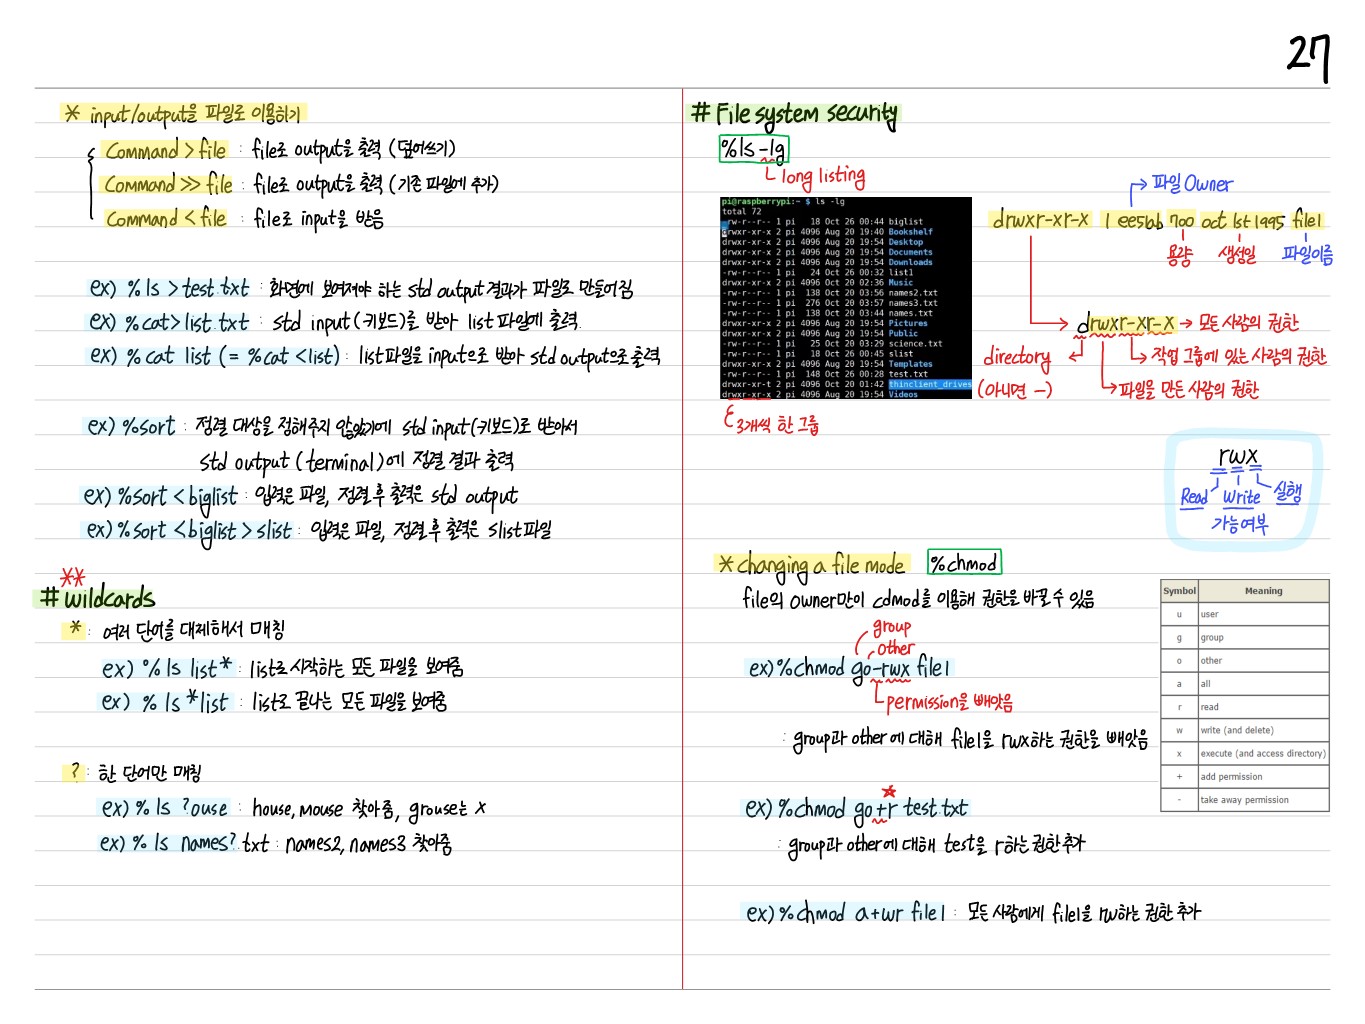 27
* input/output을 파일로 이용하기
Command > file : file로 output을 출력 (덮어쓰기)
Command >> file : file로 output을 출력 (기존 파일에 추가)
Command < file : file로 input을 받음
ex) % ls > test.txt : 화면에 보여져야 하는 std output 결과가 파일로 만들어짐
ex) % cat > list.txt : std input (키보드)를 받아 list 파일에 출력.
ex) % cat list (= % cat < list) : list 파일을 input으로 받아 std output으로 출력
ex) % sort : 정렬 대상을 정해주지 않았기에 std input (키보드)로 받아서
std output (terminal)에 정렬 결과 출력
ex) % sort < biglist : 입력은 파일, 정렬 후 출력은 std output
ex) % sort < biglist > slist : 입력은 파일, 정렬 후 출력은 slist 파일
**
# wildcards
* : 여러 단어를 대체해서 매칭
ex) % ls list* : list로 시작하는 모든 파일을 보여줌
ex) % ls *list : list로 끝나는 모든 파일을 보여줌
? : 한 단어만 매칭
ex) % ls ?ouse : house, mouse 찾아줌, grouse는 x
ex) % ls names?.txt : names2, names3 찾아줌
# File system security
% ls -lg
long listing
pi@raspberrypi:~ $ ls -lg
total 72
-rw-r--r-- 1 pi 18 Oct 26 00:44 biglist
drwxr-xr-x 2 pi 4096 Aug 20 19:40 Bookshelf
drwxr-xr-x 2 pi 4096 Aug 20 19:54 Desktop
drwxr-xr-x 2 pi 4096 Aug 20 19:54 Documents
drwxr-xr-x 2 pi 4096 Aug 20 19:54 Downloads
-rw-r--r-- 1 pi 24 Oct 26 00:32 list1
drwxr-xr-x 2 pi 4096 Oct 20 02:36 Music
-rw-r--r-- 1 pi 138 Oct 20 03:56 names2.txt
-rw-r--r-- 1 pi 276 Oct 20 03:57 names3.txt
-rw-r--r-- 1 pi 138 Oct 20 03:44 names.txt
drwxr-xr-x 2 pi 4096 Aug 20 19:54 Pictures
drwxr-xr-x 2 pi 4096 Aug 20 19:54 Public
-rw-r--r-- 1 pi 25 Oct 20 03:29 science.txt
-rw-r--r-- 1 pi 18 Oct 26 00:45 slist
drwxr-xr-x 2 pi 4096 Aug 20 19:54 Templates
-rw-r--r-- 1 pi 148 Oct 26 00:28 test.txt
drwxr-xr-t 2 pi 4096 Oct 20 01:42 thinclient_drives
drwxr-xr-x 2 pi 4096 Aug 20 19:54 Videos
3개씩 한 그룹
파일 Owner
drwxr-xr-x 1 ee51ab 700 oct 1st 1995 file1
용량 생성일 파일이름
drwxr-xr-x → 모든 사람의 권한
directory
작업 그룹에 있는 사람의 권한
(아니면 -)
파일을 만든 사람의 권한
rwx
Read Write 실행
가능여부
* changing a file mode % chmod
file의 owner만이 cdmod를 이용해 권한을 바꿀 수 있음
group
other
ex) % chmod go-rwx file1
permission을 빼앗음
: group과 other에 대해 file1을 rwx하는 권한을 빼앗음
ex) % chmod go+r test.txt
: group과 other에 대해 test을 r하는 권한 추가
ex) % chmod a+wr file1 : 모든 사람에게 file1을 rw하는 권한 추가
Symbol Meaning
u user
g group
o other
a all
r read
w write (and delete)
x execute (and access directory)
+ add permission
- take away permission